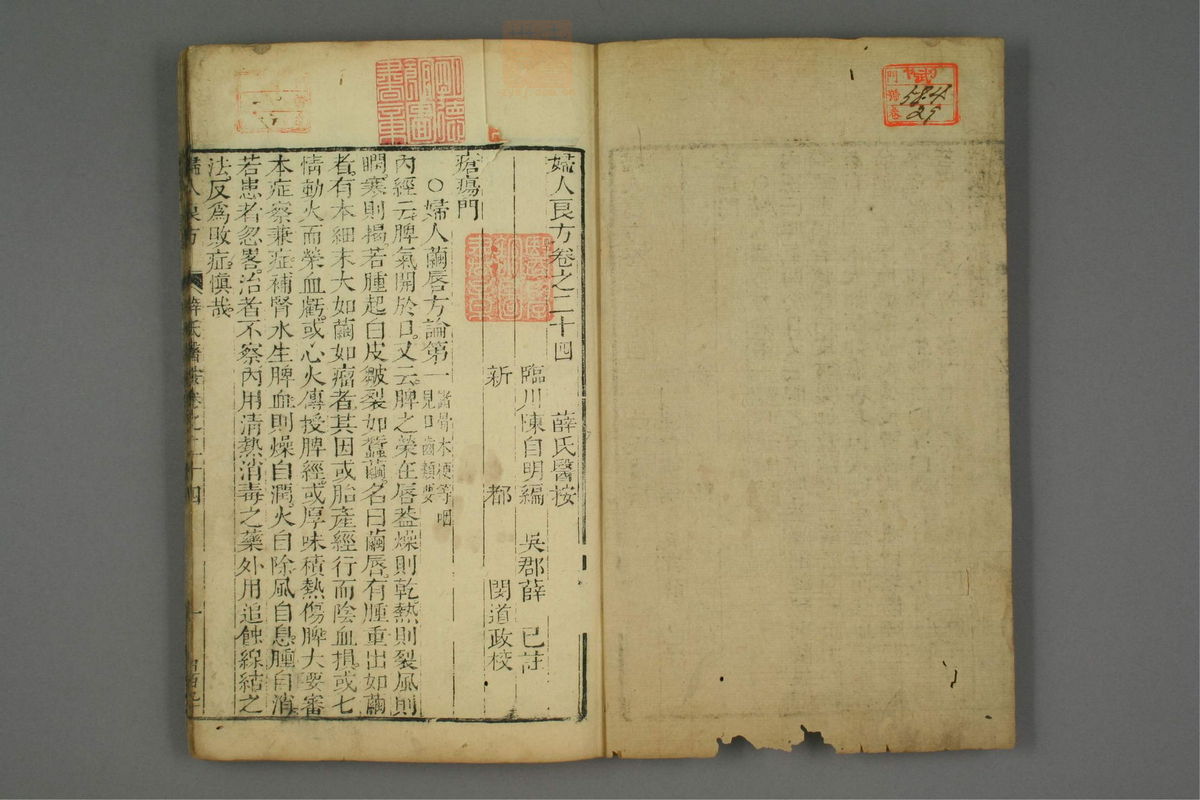 58.4
29
婦人良方卷之二十四　薛氏醫按
臨川陳自明編　吳郡薛　已註
新　都　閔道政校
瘡瘍門
○婦人繭唇方論第一
諸骨木梗等咽
見口齒類要
內經云脾氣開於口又云脾之榮在唇蓋燥則乾熱則裂風則
瞤寒則揭若腫起白皮皺裂如蠶繭名曰繭唇有腫重出如繭
者有本細末大如繭如瘤者其因或胎產經行而陰血損或七
情動火而榮血虧或心火傳授脾經或厚味積熱傷脾大要審
本症察兼症補腎水生脾血則燥自潤火自除風自息腫自消
若患者忽畧治者不察內用清熱消毒之藥外用追蝕線結之
法反爲敗症愼哉
婦人良方　薛氏醫按卷之二十四　一